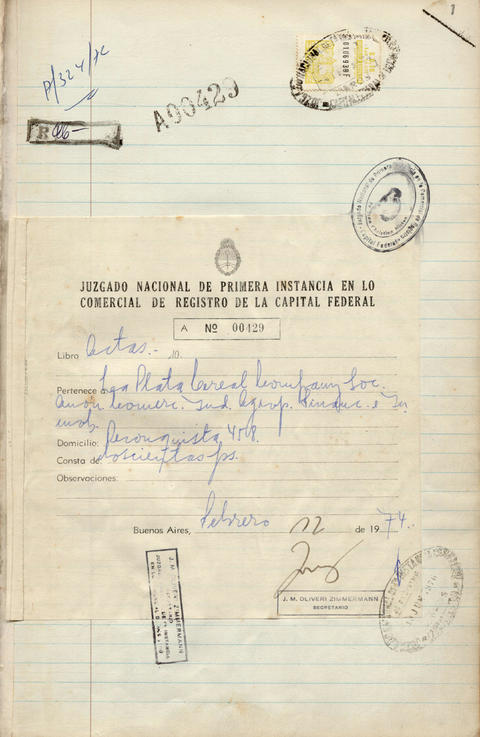 1
P/324/72
A00429
R 16-
JUZGADO NACIONAL DE PRIMERA INSTANCIA EN LO
COMERCIAL DE REGISTRO DE LA CAPITAL FEDERAL
A Nº 00429
Libro Actas.- 10.
Pertenece a La Plata Cereal Company Soc.
Anón. Comerc. Ind. Agrop. Financ. e In
mob.
Domicilio: Reconquista 458.
Consta de: doscientas fs.
Observaciones:
Buenos Aires, Febrero 12 de 1974.
J. M. OLIVERI ZIMMERMANN
SECRETARIO
J. M. OLIVERI ZIMMERMANN